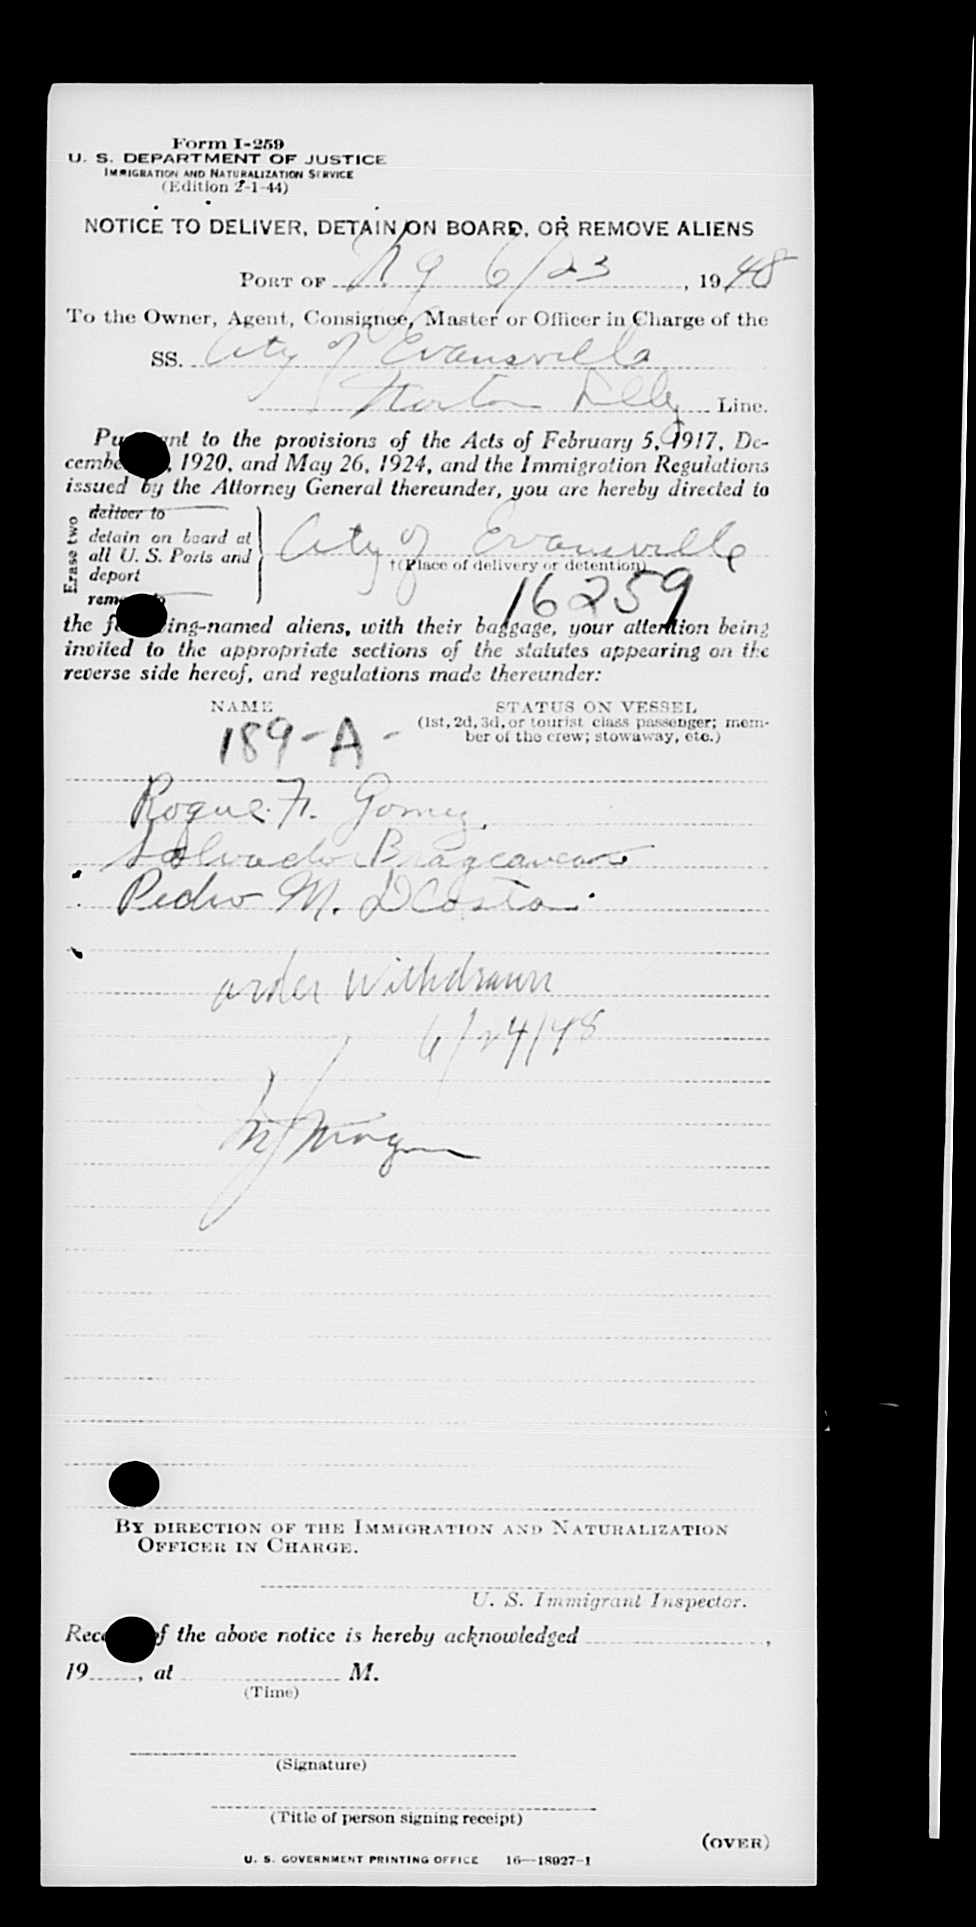 Form I-259
U. S. DEPARTMENT OF JUSTICE
IMMIGRATION AND NATURALIZATION SERVICE
(Edition 2-1-44)
NOTICE TO DELIVER, DETAIN ON BOARD, OR REMOVE ALIENS
PORT OF N Y 6/23, 1948
To the Owner, Agent, Consignee, Master or Officer in Charge of the
SS. City of Evansville
Norton Lilly Line.
Pu nt to the provisions of the Acts of February 5, 1917, De-
cembe , 1920, and May 26, 1924, and the Immigration Regulations
issued by the Attorney General thereunder, you are hereby directed to
Erase two
deliver to
detain on board at
all U. S. Ports and
deport
rem to
City of Evansville
†(Place of delivery or detention)
16259
the f ing-named aliens, with their baggage, your attention being
invited to the appropriate sections of the statutes appearing on the
reverse side hereof, and regulations made thereunder:
NAME STATUS ON VESSEL
(1st, 2d, 3d, or tourist class passenger; mem-
ber of the crew; stowaway, etc.)
189-A-
Roque F. Gomez
Salvador
Pedro M. DCosta
order withdrawn
6/24/48
BY DIRECTION OF THE IMMIGRATION AND NATURALIZATION
OFFICER IN CHARGE.
U. S. Immigrant Inspector.
Rec f the above notice is hereby acknowledged ,
19 , at M.
(Time)
(Signature)
(Title of person signing receipt)
(OVER)
U. S. GOVERNMENT PRINTING OFFICE 16—18927-1